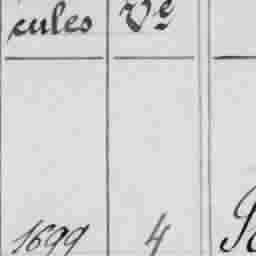 cules Vᵉ
1699 4